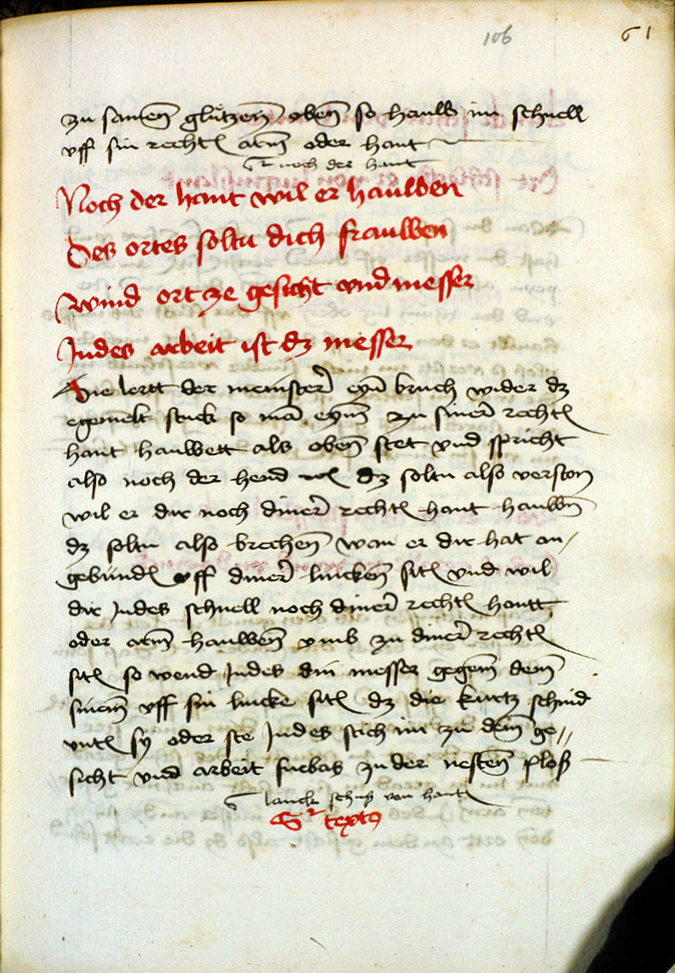 106
61
zu samen glützen oben so hauw im schnell
vff sin rechten arm oder hant
noch der hant
Noch der hant wil er hauwen
Des ortes soltu dich frauwen
Wind ort ze gesicht vnd messer
Indes arbeit ist dz messer
Hie lertt der meinster eyn bruch wider dz
egemelt stuck so man eynem zu siner rechten
hant hauwett als oben stet vnd spricht
also noch der hend dz soltu also verston
wil er dir noch diner rechten hant hauwen
dz soltu also brechen wan er dir hat an
gebunden vff diner lincken siten vnd wil
dir Indes schnell noch diner rechten hantt
oder arm hauwen vmb zu diner rechten
siten so wend Indes din messer gegem dem
sinem vff sin lincke siten dz die kurtz schnid
vnten sy oder ste Indes stich im zu dem ge//
sicht vnd arbeit furbas zu der nesten ploß
lanck schuß von hant
textus